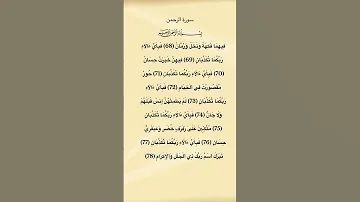 سورة الرحمن
بِسْمِ اللَّهِ الرَّحْمَٰنِ الرَّحِيمِ
فِيهِمَا فَاكِهَةٌ وَنَخْلٌ وَرُمَّانٌ (68) فَبِأَيِّ ءَالَآءِ
رَبِّكُمَا تُكَذِّبَانِ (69) فِيهِنَّ خَيْرَٰتٌ حِسَانٌ
(70) فَبِأَيِّ ءَالَآءِ رَبِّكُمَا تُكَذِّبَانِ (71) حُورٌ
مَّقْصُورَٰتٌ فِي الْخِيَامِ (72) فَبِأَيِّ ءَالَآءِ
رَبِّكُمَا تُكَذِّبَانِ (73) لَمْ يَطْمِثْهُنَّ إِنسٌ قَبْلَهُمْ
وَلَا جَانٌّ (74) فَبِأَيِّ ءَالَآءِ رَبِّكُمَا تُكَذِّبَانِ
(75) مُتَّكِئِينَ عَلَىٰ رَفْرَفٍ خُضْرٍ وَعَبْقَرِيٍّ
حِسَانٍ (76) فَبِأَيِّ ءَالَآءِ رَبِّكُمَا تُكَذِّبَانِ (77)
تَبَٰرَكَ اسْمُ رَبِّكَ ذِي الْجَلَٰلِ وَالْإِكْرَامِ (78)